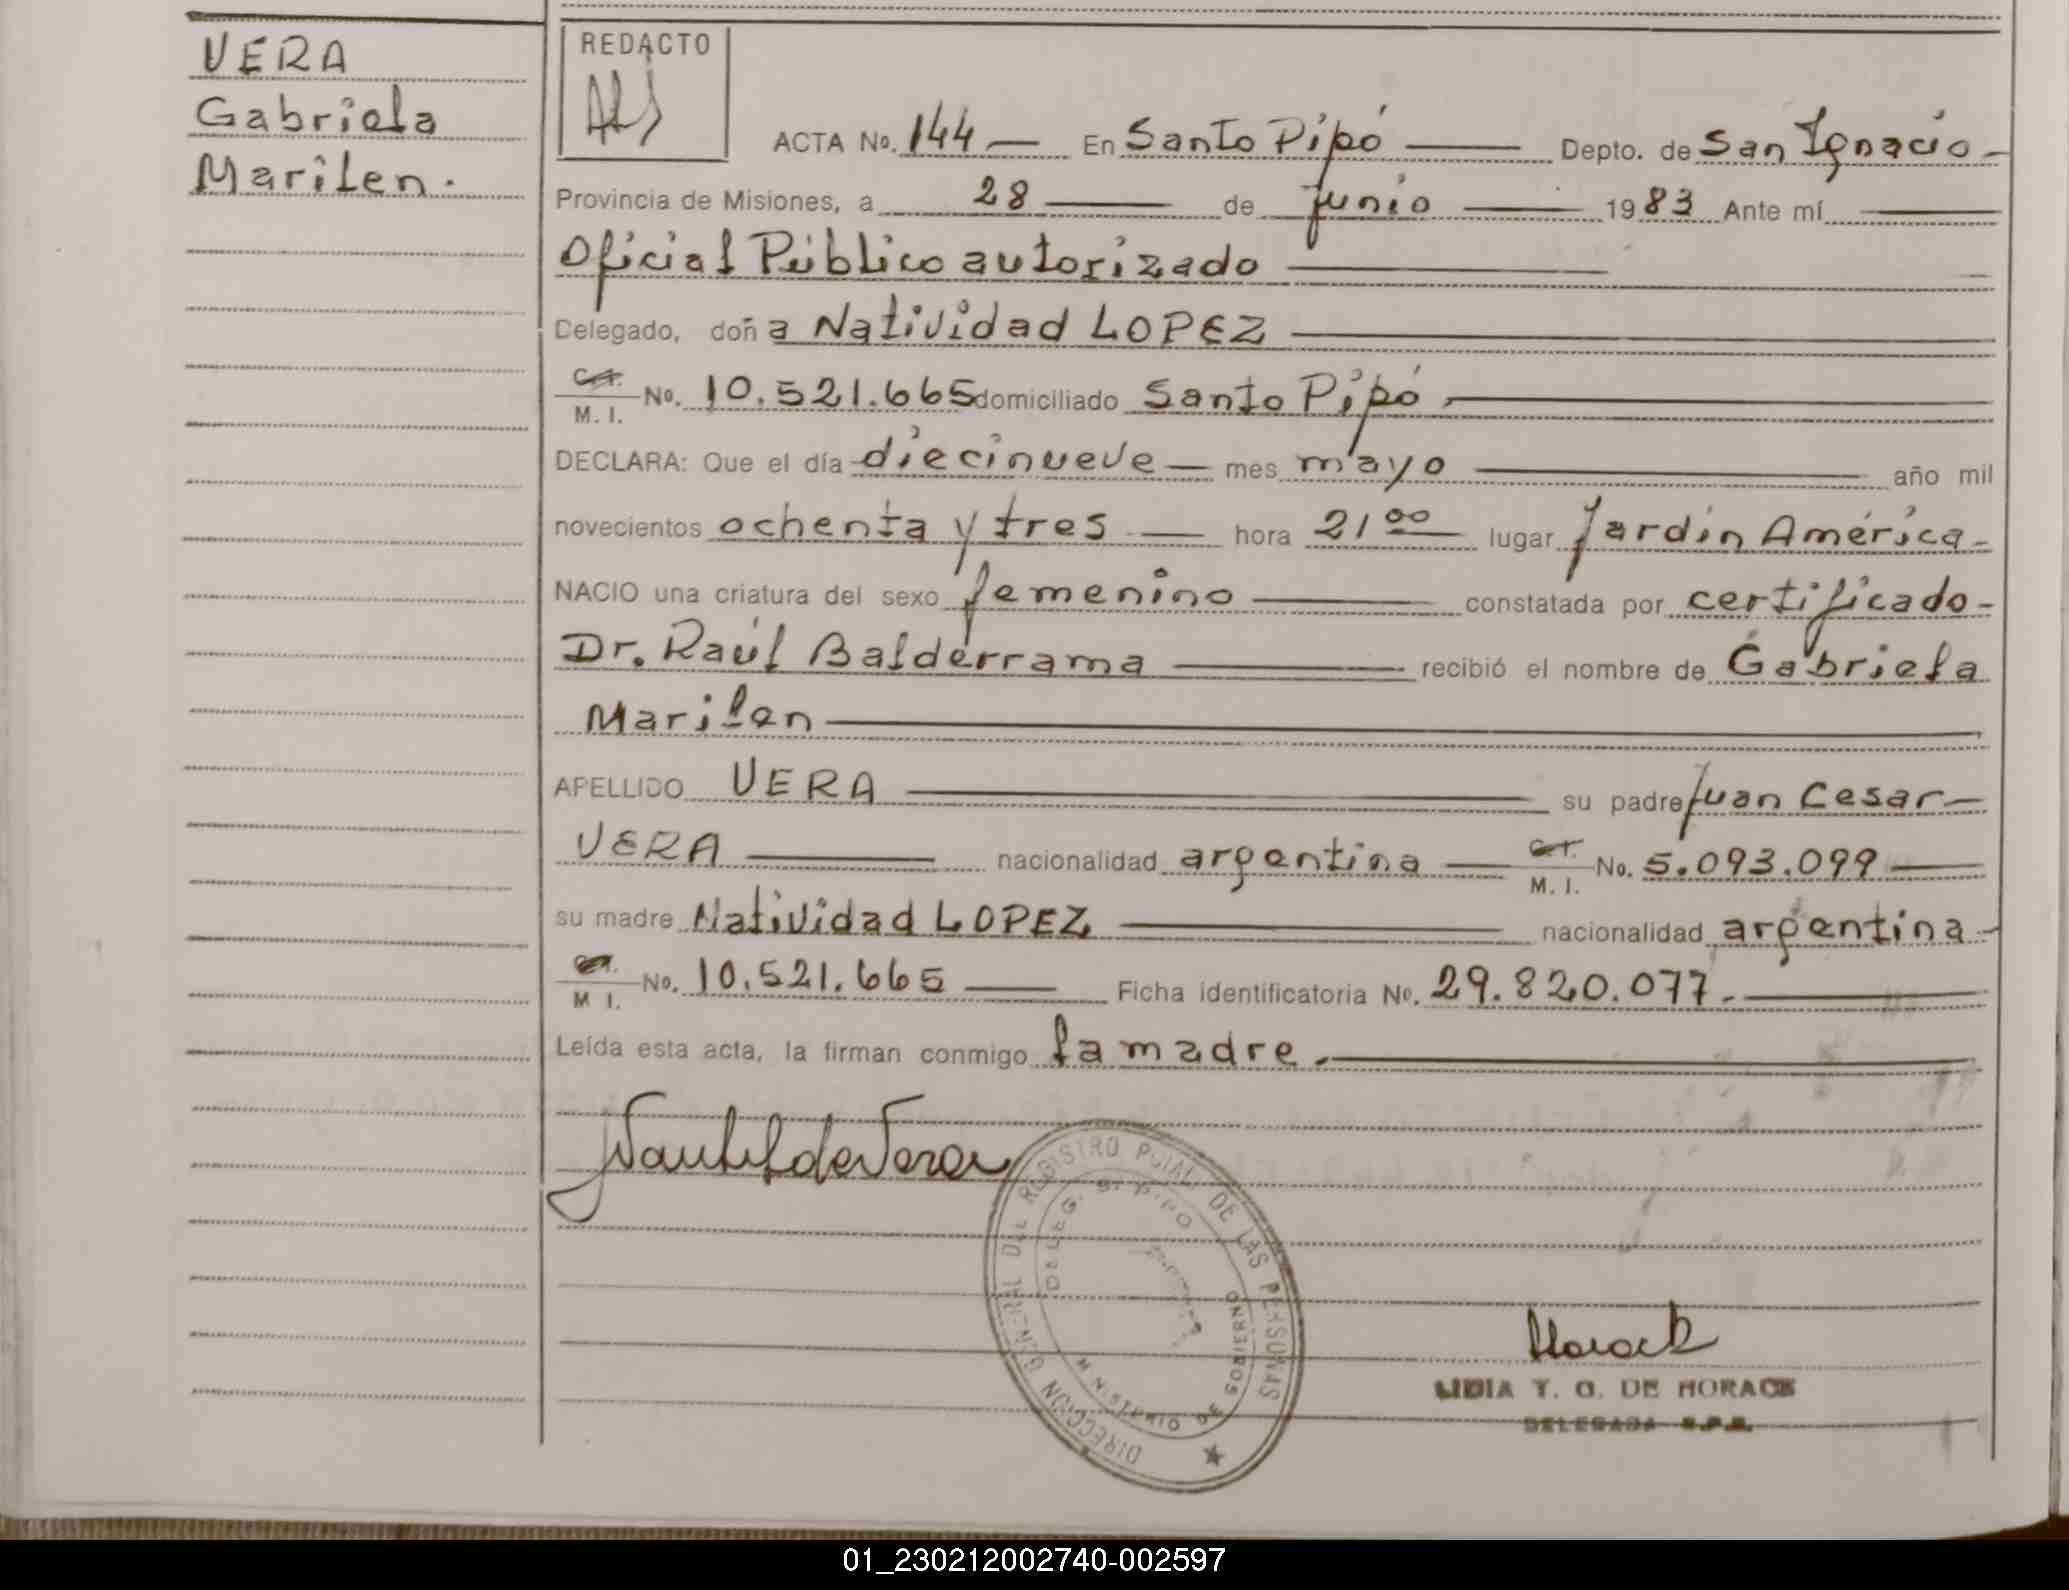 VERA
Gabriela
Marilen.
REDACTO
ACTA No. 144 En Santo Pipó Depto. de San Ignacio
Provincia de Misiones, a 28 de junio 1983 Ante mí
Oficial Público autorizado
Delegado, doña Natividad LOPEZ
C.I. M. I. No. 10.521.665 domiciliado Santo Pipó
DECLARA: Que el día diecinueve mes mayo año mil
novecientos ochenta y tres hora 21 00 lugar Jardín América
NACIO una criatura del sexo femenino constatada por certificado
Dr. Raúl Balderrama recibió el nombre de Gabriela
Marilen
APELLIDO VERA su padre Juan Cesar
VERA nacionalidad argentina C.I. M. I. No. 5.093.099
su madre Natividad LOPEZ nacionalidad argentina
C.I. M I. No. 10.521.665 Ficha identificatoria No. 29.820.077.
Leída esta acta, la firman conmigo la madre.
DIRECCION GENERAL DEL REGISTRO PCIAL. DE LAS PERSONAS
DELEG. STO. PIPO
MINISTERIO DE GOBIERNO
Horack
LIDIA Y. G. DE HORACK
DELEGADA R.P.P.
01_230212002740-002597